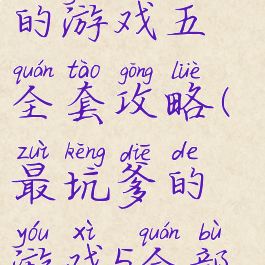 的游戏五
quán tào gōng lüè
全套攻略(
zuì kēng diē de
最坑爹的
yóu xì quán bù
游戏5全部